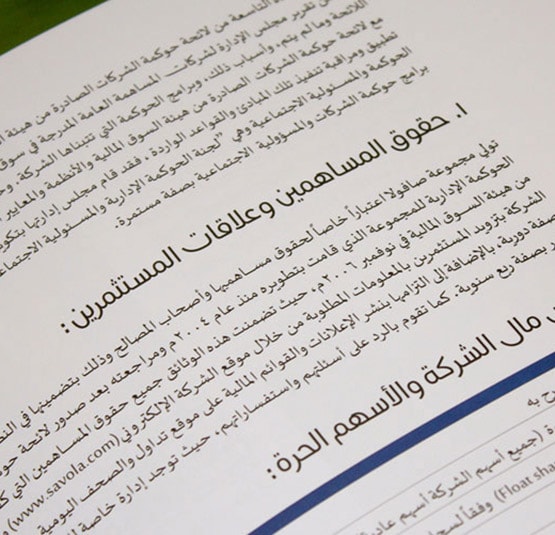 التاسعة من لائحة حوكمة الشركات الصادرة من هيئة
تقرير مجلس الإدارة لشركات المساهمة العامة المدرجة في سوق
اللائحة وما لم يتم، وأسباب ذلك، وبرامج الحوكمة التي تتبناها الشركة.
مع لائحة حوكمة الشركات الصادرة من هيئة السوق المالية والأنظمة والمعايير
تطبيق ومراقبة تنفيذ تلك المبادئ والقواعد الواردة، فقد قام مجلس إدارتها بتكوين
الحوكمة والمسئولية الاجتماعية وهي "لجنة الحوكمة الإدارية والمسئولية
برامج حوكمة الشركات والمسؤولية الاجتماعية بصفة مستمرة.
١. حقوق المساهمين وعلاقات المستثمرين:
تولي مجموعة صافولا اعتباراً خاصاً لحقوق مساهميها وأصحاب المصالح وذلك بتضمينها في
الحوكمة الإدارية للمجموعة الذي قامت بتطويره منذ عام ٢٠٠٤م ومراجعته بعد صدور لائحة
من هيئة السوق المالية في نوفمبر ٢٠٠٦م، حيث تضمنت هذه الوثائق جميع حقوق المساهمين التي
الشركة بتزويد المستثمرين بالمعلومات المطلوبة من خلال موقع الشركة الإلكتروني (www.savola.com)
دورية. بالإضافة إلى التزامها بنشر الإعلانات والقوائم المالية على موقع تداول والصحف اليومية
بصفة ربع سنوية. كما تقوم بالرد على أسئلتهم واستفساراتهم، حيث توجد إدارة خاصة
مال الشركة والأسهم الحرة:
به
(جميع أسهم الشركة أسهم
(Float وفقاً